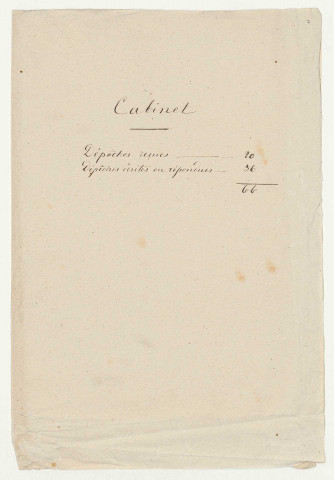 Cabinet
Dépêches reçues — 20
Dépêches écrites en réponses — 36
66